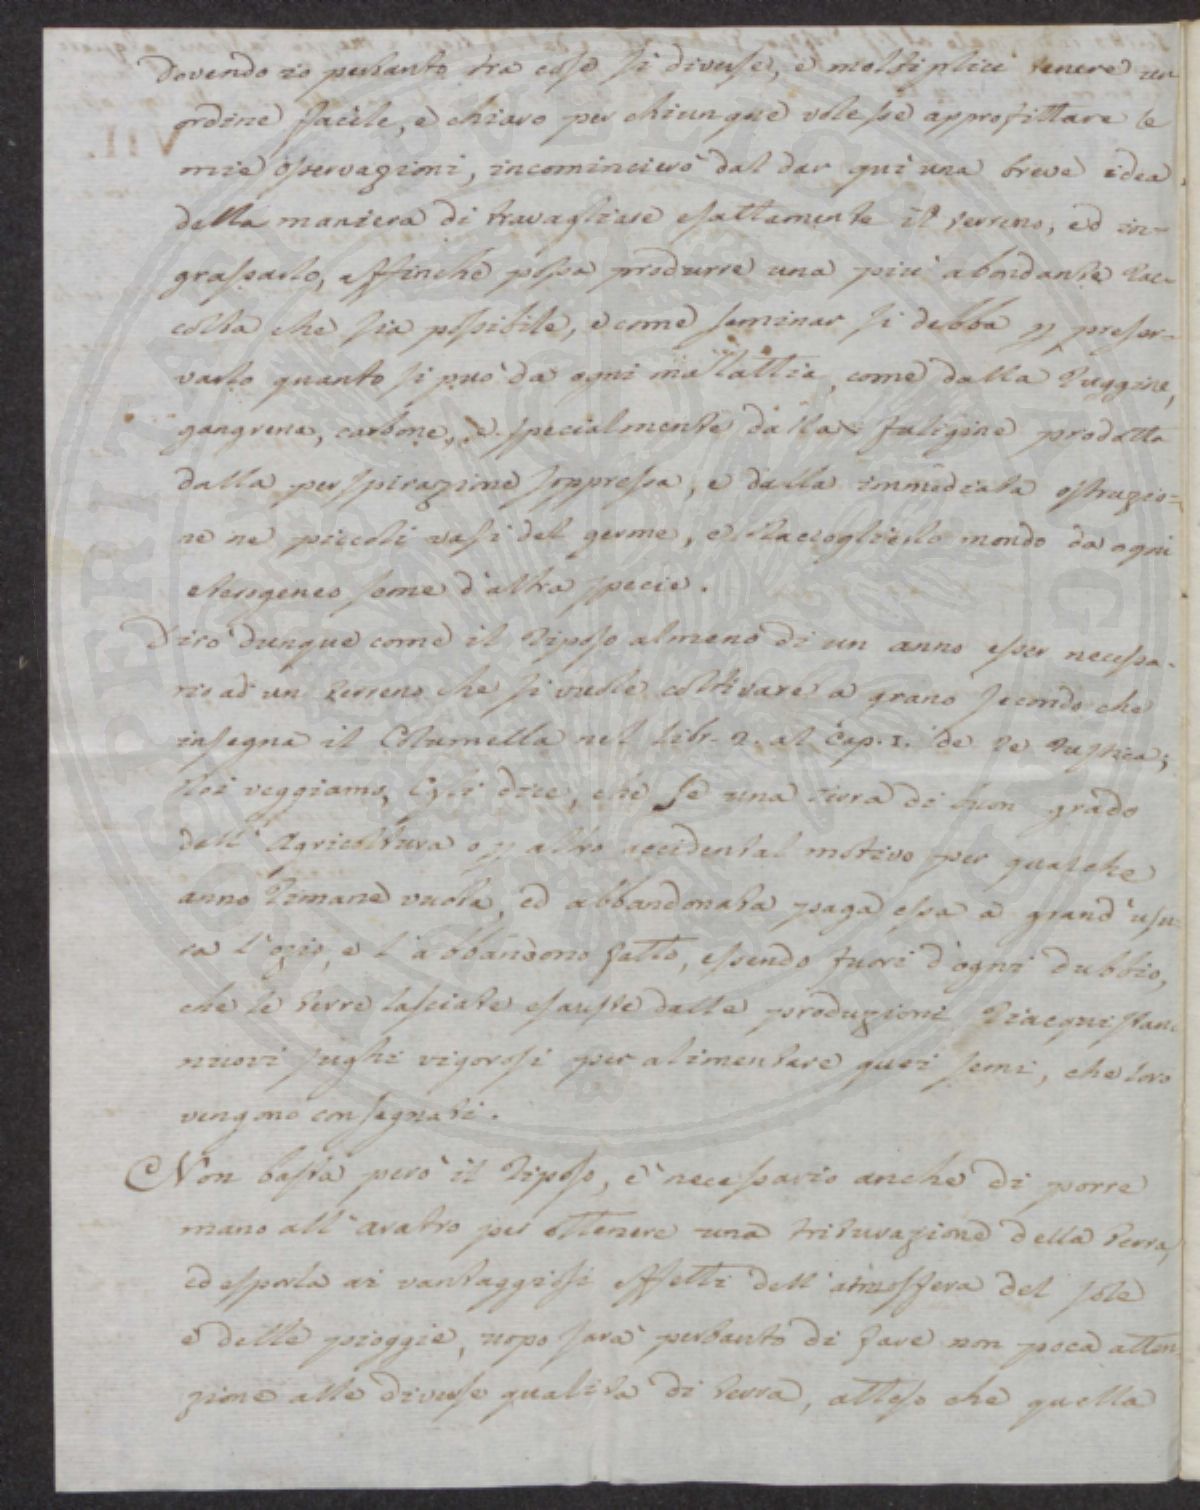 Dovendo io pertanto tra cose sì diverse, e moltiplici tenere un
ordine facile, e chiaro per chiunque volesse approfittare le
mie osservazioni, incomincierò dal dar quì una breve idea
della maniera di travagliare esattamente il terreno, ed in-
grassarlo, affinchè possa produrre una più abondante Rac-
colta che sia possibile, e come seminar si debba p preser-
varlo quanto si può da ogni malattia, come dalla Ruggine,
gangrena, carbone, e specialmente dalla fuligine prodotta
dalla perspirazione soppressa, e dalla immediata ostruzio=
ne ne piccoli vasi del germe, e Raccoglierlo mondo da ogni
eterogeneo seme d'altra specie.
Dirò dunque come il Riposo almeno di un anno esser necessa-
rio ad un Terreno che si vuole coltivare a grano secondo che
insegna il Columella nel Libr. 2. al Cap. 1. de Re Rustica;
Noi veggiamo, Egli dice, che se una Terra di buon grado
dell'Agricoltura o p altro accidental motivo per qualche
anno Rimane vuota, ed abbandonata paga essa a grand'usu-
ra l'ozio, e l'abbandono fatto, essendo fuori d'ogni dubbio,
che le terre lasciate esauste dalle produzioni Riacquistano
nuovi sughi vigorosi per alimentare quei semi, che loro
vengono consegnati.
Non basta però il Riposo, è necessario anche di porre
mano all'aratro per ottenere una triturazione della terra,
ed esporla ai vantaggiosi effetti dell'atmosfera del sole
e delle pioggie, uopo sarà pertanto di fare non poca atten-
zione alle diverse qualità di terra, atteso che quella